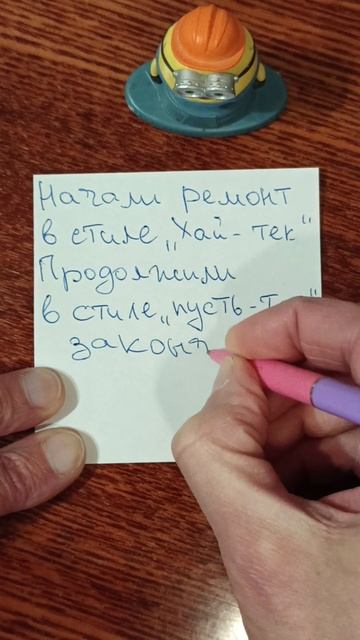 Начали ремонт
в стиле „Хай-тек"
Продолжили
в стиле „пусть-